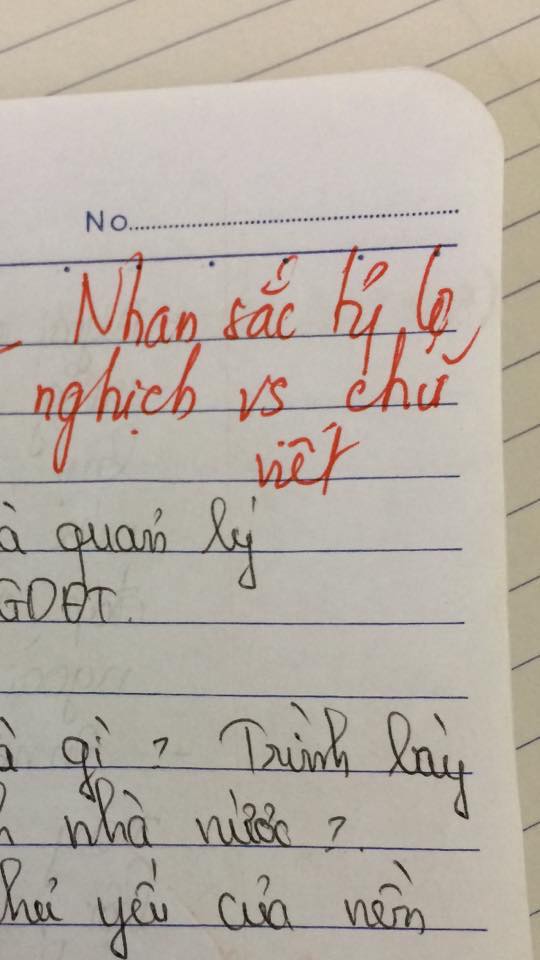 No
Nhan sắc tỷ lệ
nghịch vs chữ
viết
à quản lý
GDĐT.
à gì ? Trình bày
h nhà nước ?
hủ yếu của nền